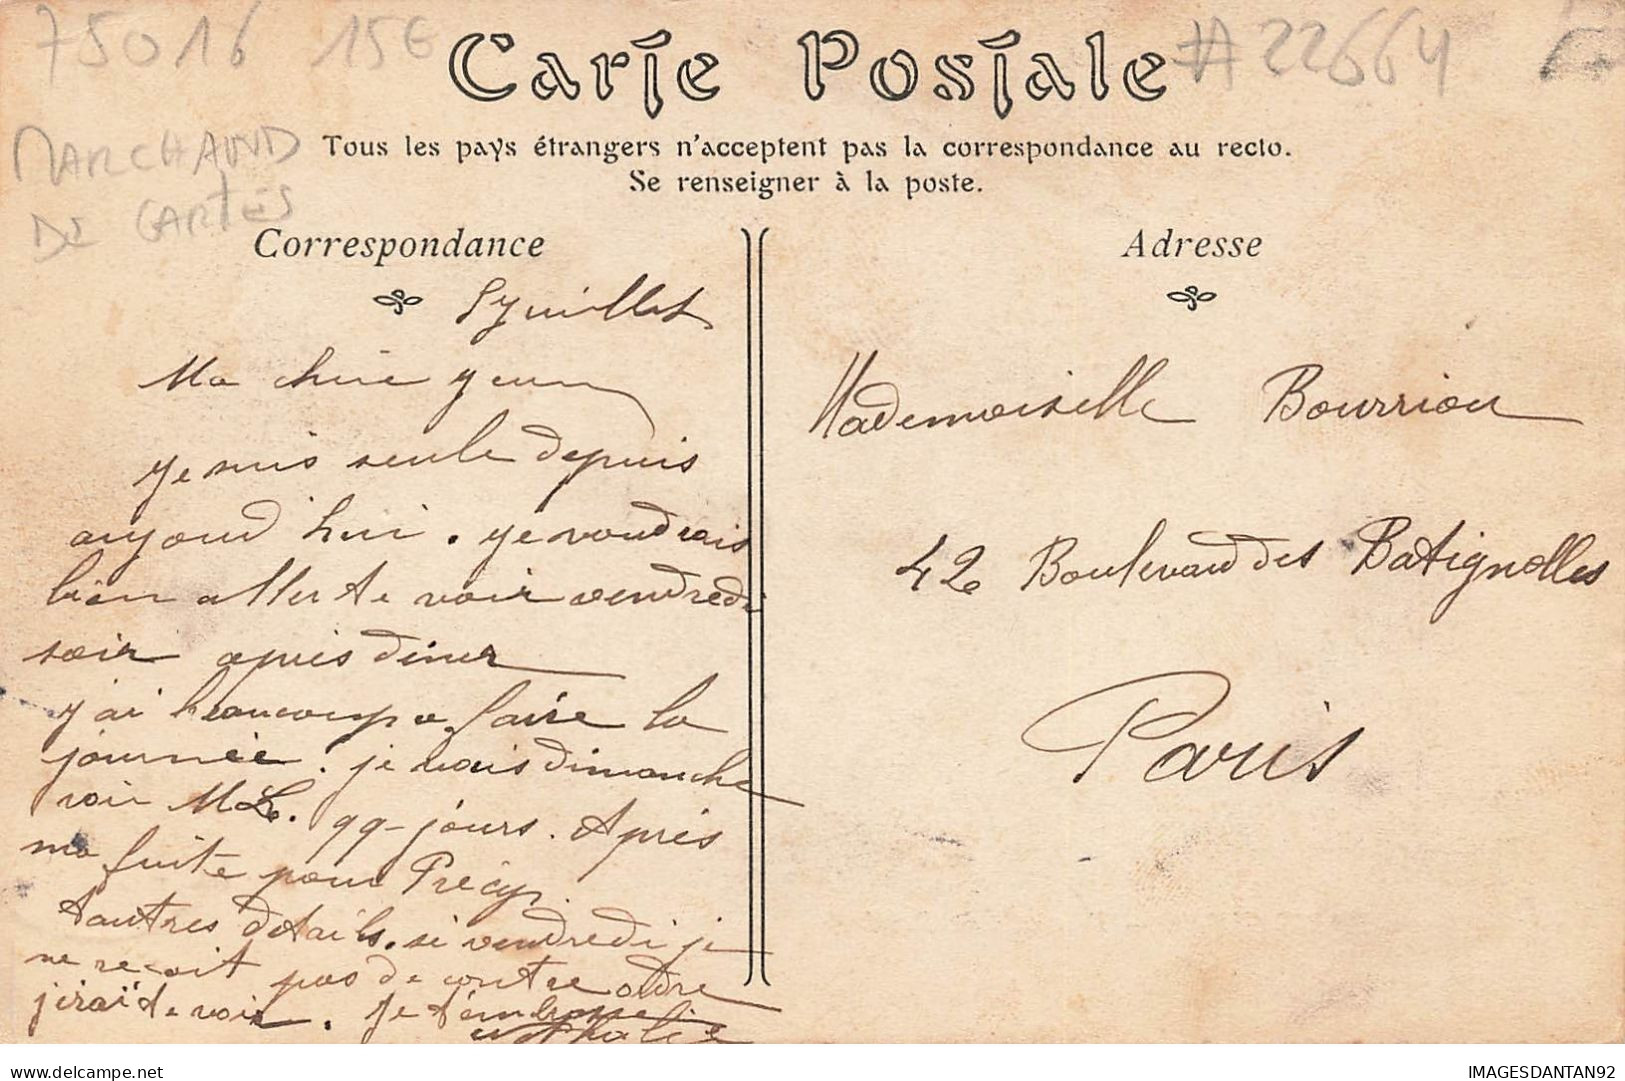 75016 15€ #22664
Carte Postale
MARCHAND
DE CARTES
Tous les pays étrangers n'acceptent pas la correspondance au recto.
Se renseigner à la poste.
Correspondance
juillet
Ma chère
je suis seule depuis
aujourd hui. je voudrais
bien aller te voir vendredi
soir après diner
j'ai beaucoup a faire la
journée. je vais dimanche
voir ML. 99-jours. Après
ma fuite pour Précy.
d'autres détails. si vendredi je
ne recoit pas de contre ordre
j'irai te voir. Je t'embrasse
Nathalie
Adresse
Mademoiselle Bourriou
42 Boulevard des Batignolles
Paris
IMAGESDANTAN92
delcampe.net